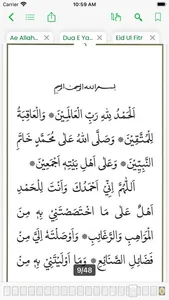 Carrier 10:59 AM
Ae Allah... Dua E Ya... Eid Ul Fitr
بسم الله الرحمن الرحيم
اَلْحَمْدُ لِلّٰهِ رَبِّ الْعَالَمِيْنَ۞ وَالْعَاقِبَةُ
لِلْمُتَّقِيْنَ۞ وَصَلَّى اللهُ عَلٰى مُحَمَّدٍ خَاتَمِ
النَّبِيِّيْنَ۞ وَعَلٰى اَهْلِ بَيْتِهٖ اَجْمَعِيْنَ۞
اَللّٰهُمَّ اِنِّيْ اَحْمَدُكَ وَاَنْتَ لِلْحَمْدِ
اَهْلٌ عَلٰى مَا اخْتَصَصْتَنِيْ بِهٖ مِنْ
الْمَوَاهِبِ وَالرَّغَائِبِ۞ وَاَوْصَلْتَهٗ اِلَيَّ مِنْ
فَضَائِلِ الصَّنَائِعِ۞ وَمَا اَوْلَيْتَنِيْ بِهٖ مِنْ
9/48